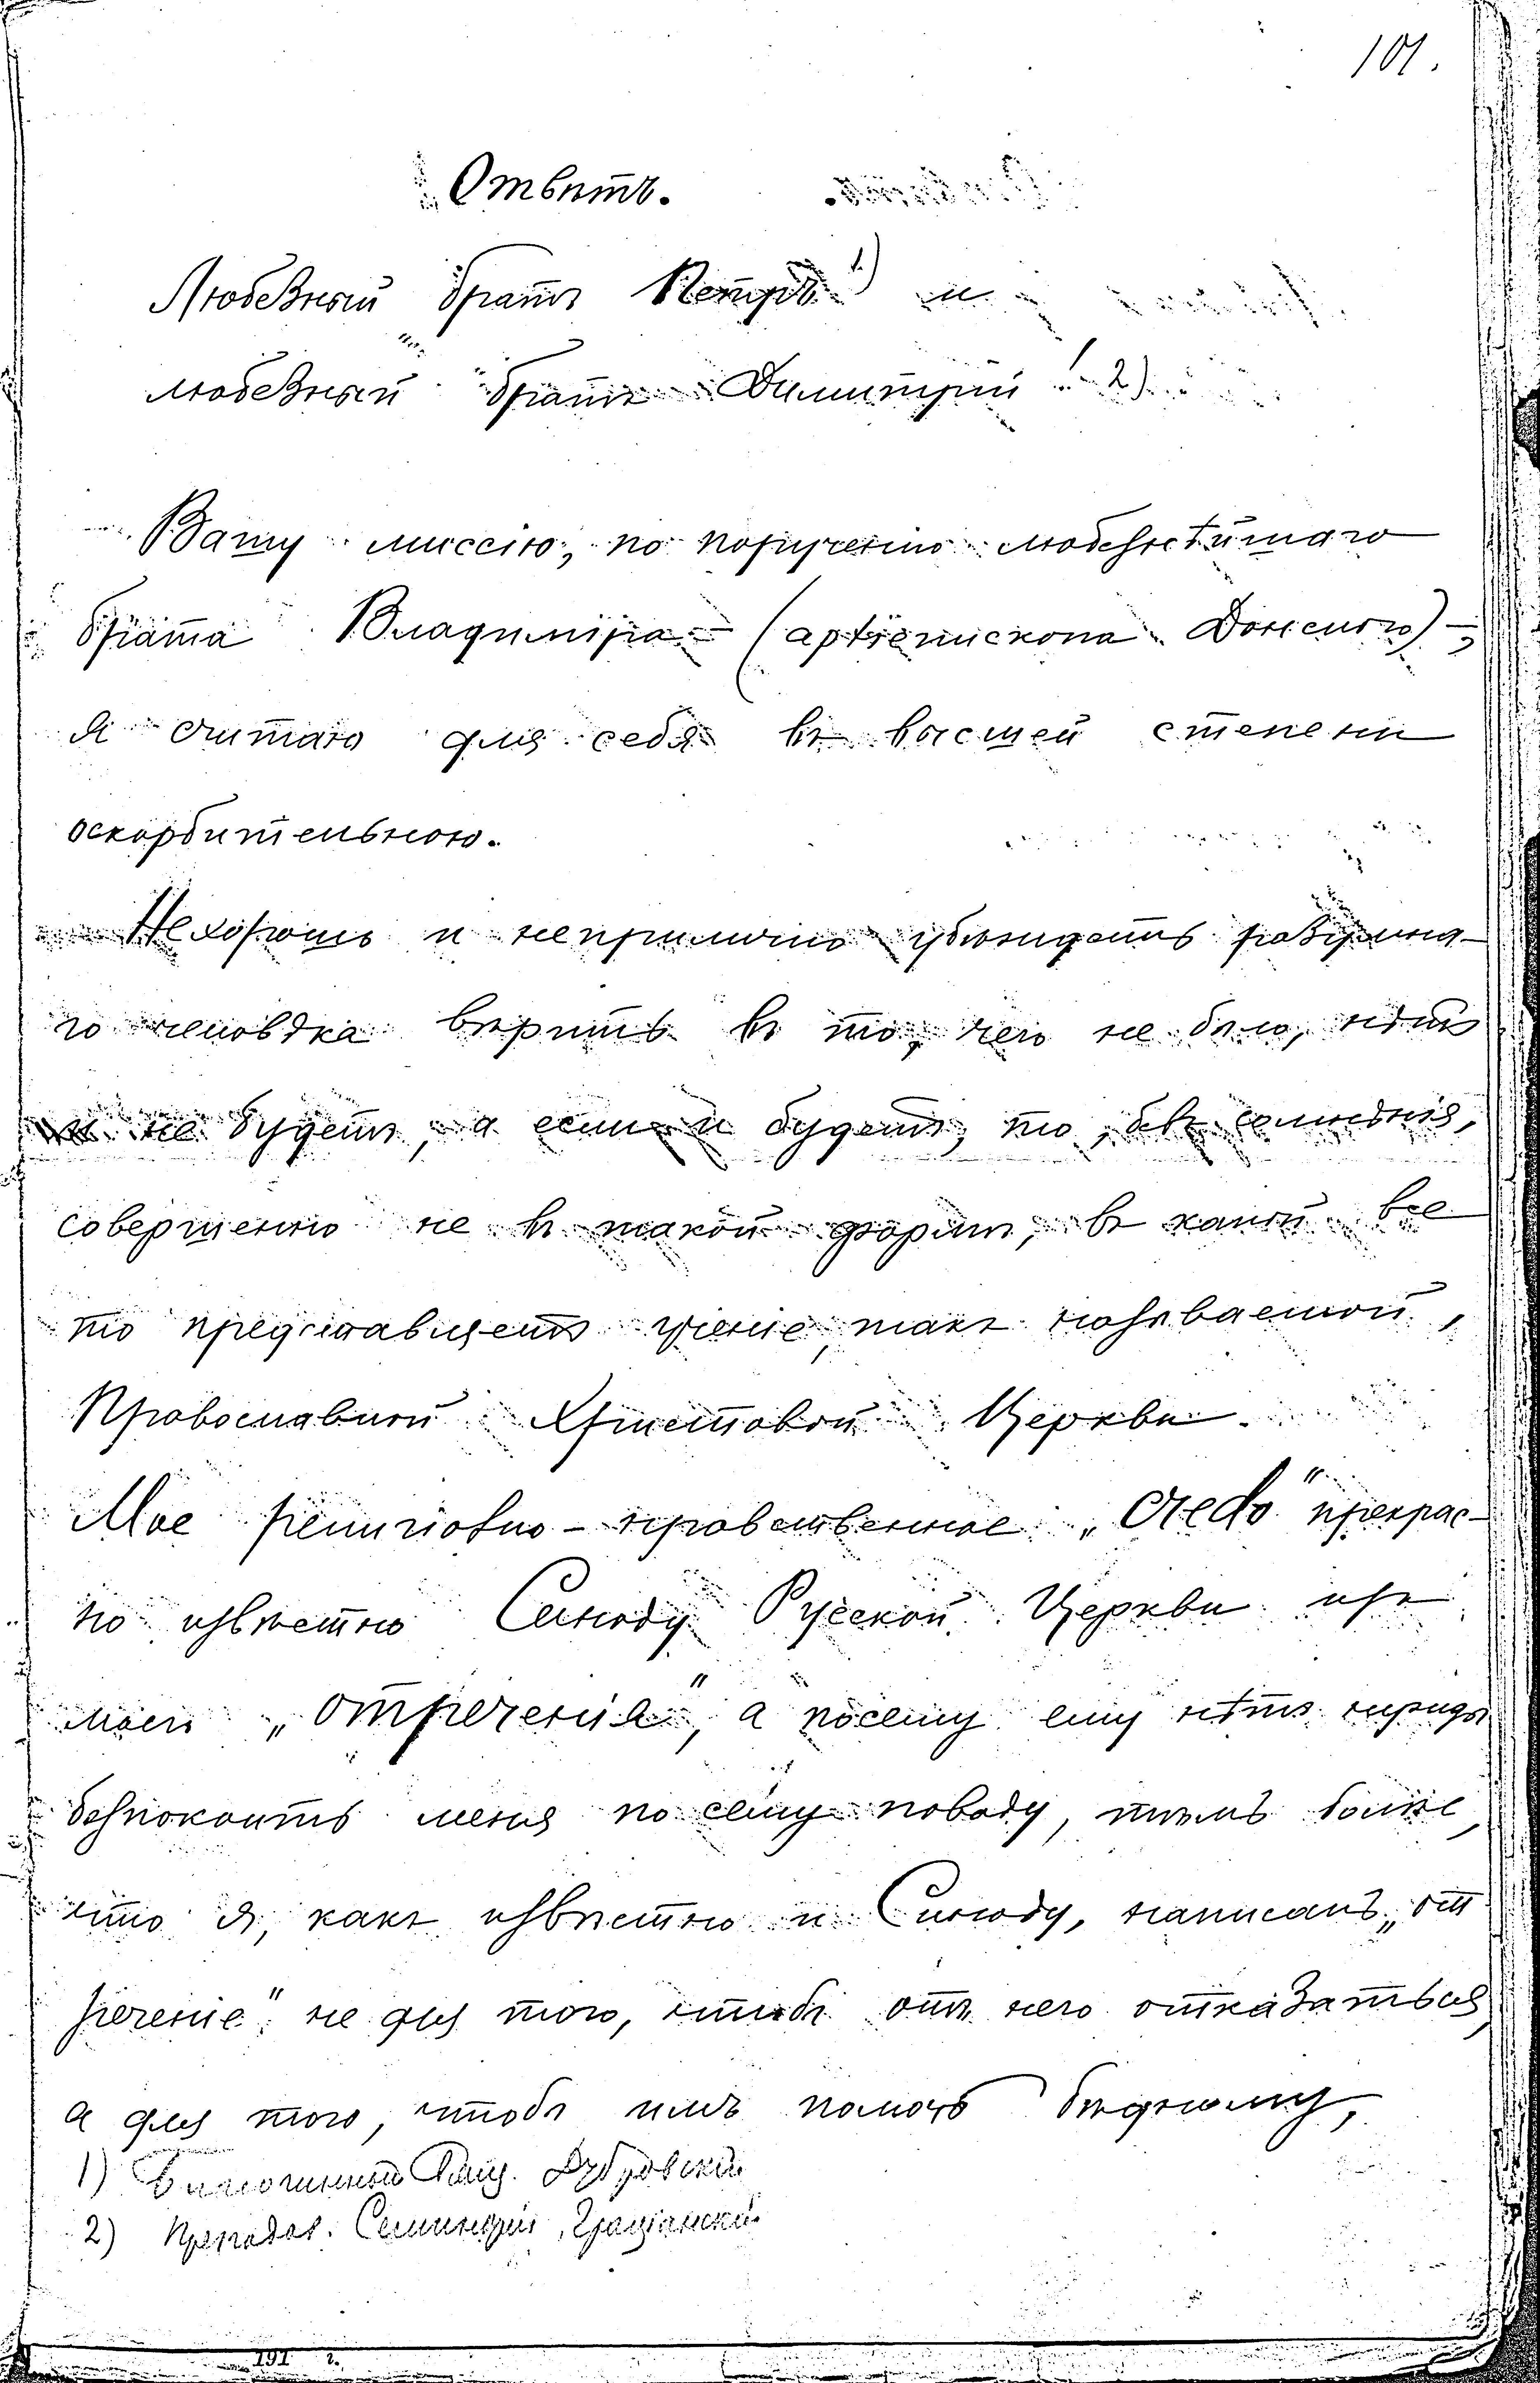 101.
Отвѣтъ.
Любезный братъ Петръ 1) и
любезный братъ Димитрій! 2)
Вашу миссію, по порученію любезнѣйшаго
брата Владиміра – (архіепископа Донского) –,
я считаю для себя въ высшей степени
оскорбительною.
Нехорошо и неприлично убѣждать разумна-
го человѣка вѣрить въ то, чего не было, нѣтъ
и не будетъ, а если и будетъ, то, безъ сомнѣнія,
совершенно не въ такой формѣ, въ какой все
то представляетъ ученіе, такъ называемой,
Православной Христовой Церкви.
Мое религіозно-нравственное „credo" прекрас-
но извѣстно Синоду Русской Церкви изъ
моего „отреченія", а посему ему нѣтъ нужды
безпокоить меня по сему поводу, тѣмъ болѣе,
что я, какъ извѣстно и Синоду, написалъ „от
реченіе" не для того, чтобъ отъ него отказаться,
а для того, чтобъ имъ помочь бѣдному,
1) Благочинный Свящ. Дубровскій
2) Преподав. Семинаріи, Граціанскій